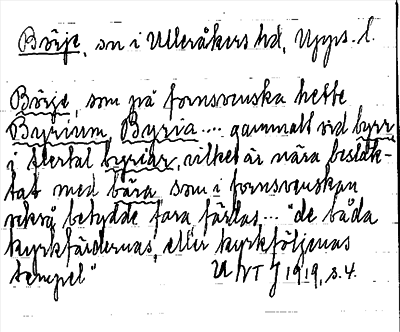 Börje, sn i Ulleråkers hd, Upps. l.
Börje, som på fornsvenska hette
Byrium, Byria .... gammalt ord byrr,
i flertal byriar, vilket är nära besläk-
tat med bära som i fornsvenskan
också betydde fara, färdas... "de båda
kyrkfärdernas, eller kyrkföljenas
tempel" U NT J 1919, s. 4.